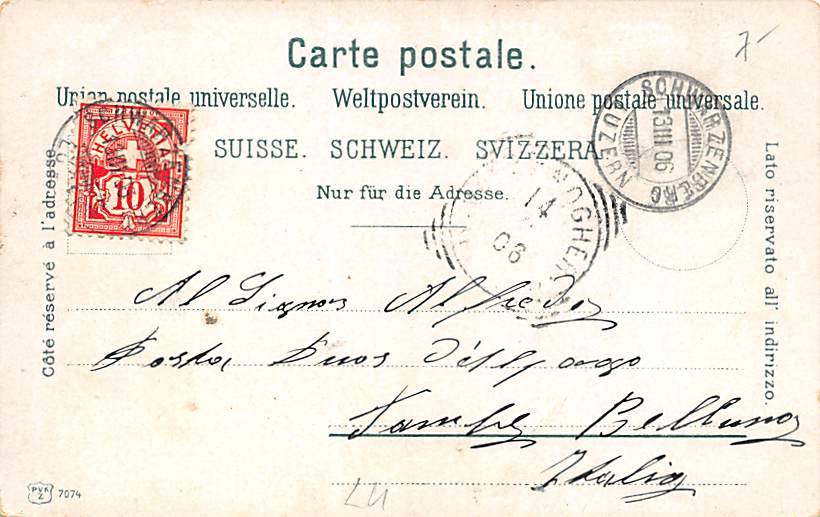 7
Carte postale.
Union postale universelle. Weltpostverein. Unione postale universale.
SUISSE. SCHWEIZ. SVIZZERA.
Nur für die Adresse.
Côté réservé à l'adresse
Lato riservato all' indirizzo.
HELVETIA
10
SCHWARZENBERG
LUZERN
13 III 06
14
06
Al Signor Alfredo
Posta
Belluno
Italia
PVKZ 7074
LU